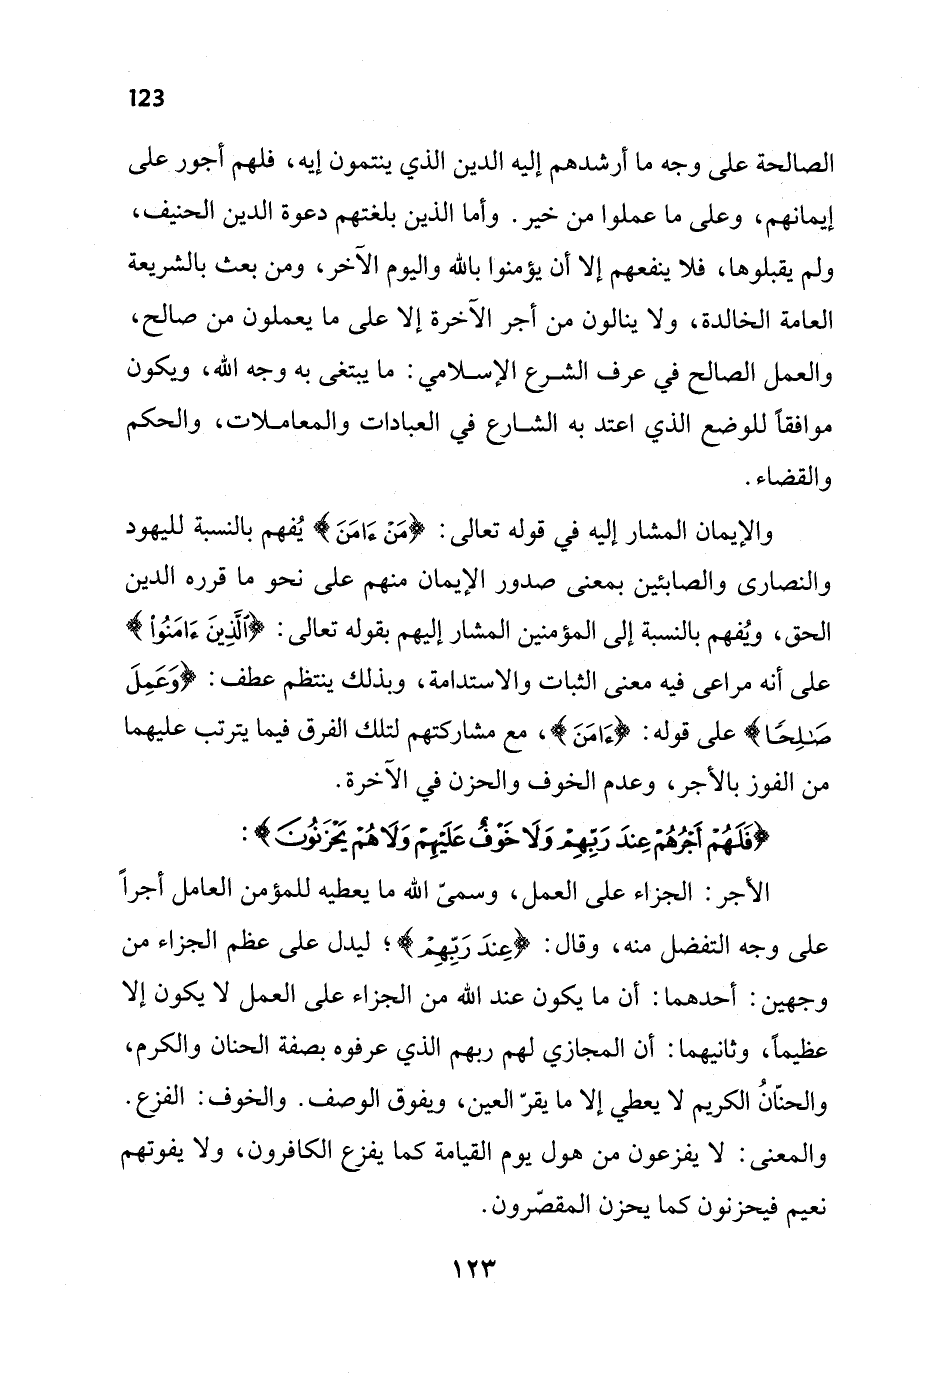 123
الصالحة على وجه ما أرشدهم إليه الدين الذي ينتمون إيه، فلهم أجور على
إيمانهم، وعلى ما عملوا من خير. وأما الذين بلغتهم دعوة الدين الحنيف،
ولم يقبلوها، فلا ينفعهم إلا أن يؤمنوا بالله واليوم الآخر، ومن بعث بالشريعة
العامة الخالدة، ولا ينالون من أجر الآخرة إلا على ما يعملون من صالح،
والعمل الصالح في عرف الشرع الإسلامي: ما يبتغى به وجه الله، ويكون
موافقاً للوضع الذي اعتد به الشارع في العبادات والمعاملات، والحكم
والقضاء.
والإيمان المشار إليه في قوله تعالى: ﴿مَنْ ءَامَنَ﴾ يُفهم بالنسبة لليهود
والنصارى والصابئين بمعنى صدور الإيمان منهم على نحو ما قرره الدين
الحق، ويُفهم بالنسبة إلى المؤمنين المشار إليهم بقوله تعالى: ﴿ٱلَّذِينَ ءَامَنُواْ﴾
على أنه مراعى فيه معنى الثبات والاستدامة، وبذلك ينتظم عطف: ﴿وَعَمِلَ
صَٰلِحًا﴾ على قوله: ﴿ءَامَنَ﴾، مع مشاركتهم لتلك الفرق فيما يترتب عليهما
من الفوز بالأجر، وعدم الخوف والحزن في الآخرة.
﴿فَلَهُمْ أَجْرُهُمْ عِندَ رَبِّهِمْ وَلَا خَوْفٌ عَلَيْهِمْ وَلَا هُمْ يَحْزَنُونَ﴾:
الأجر: الجزاء على العمل، وسميّ الله ما يعطيه للمؤمن العامل أجراً
على وجه التفضل منه، وقال: ﴿عِندَ رَبِّهِمْ﴾؛ ليدل على عظم الجزاء من
وجهين: أحدهما: أن ما يكون عند الله من الجزاء على العمل لا يكون إلا
عظيماً، وثانيهما: أن المجازي لهم ربهم الذي عرفوه بصفة الحنان والكرم،
والحنّانُ الكريم لا يعطي إلا ما يقرّ العين، ويفوق الوصف. والخوف: الفزع.
والمعنى: لا يفزعون من هول يوم القيامة كما يفزع الكافرون، ولا يفوتهم
نعيم فيحزنون كما يحزن المقصّرون.
١٢٣